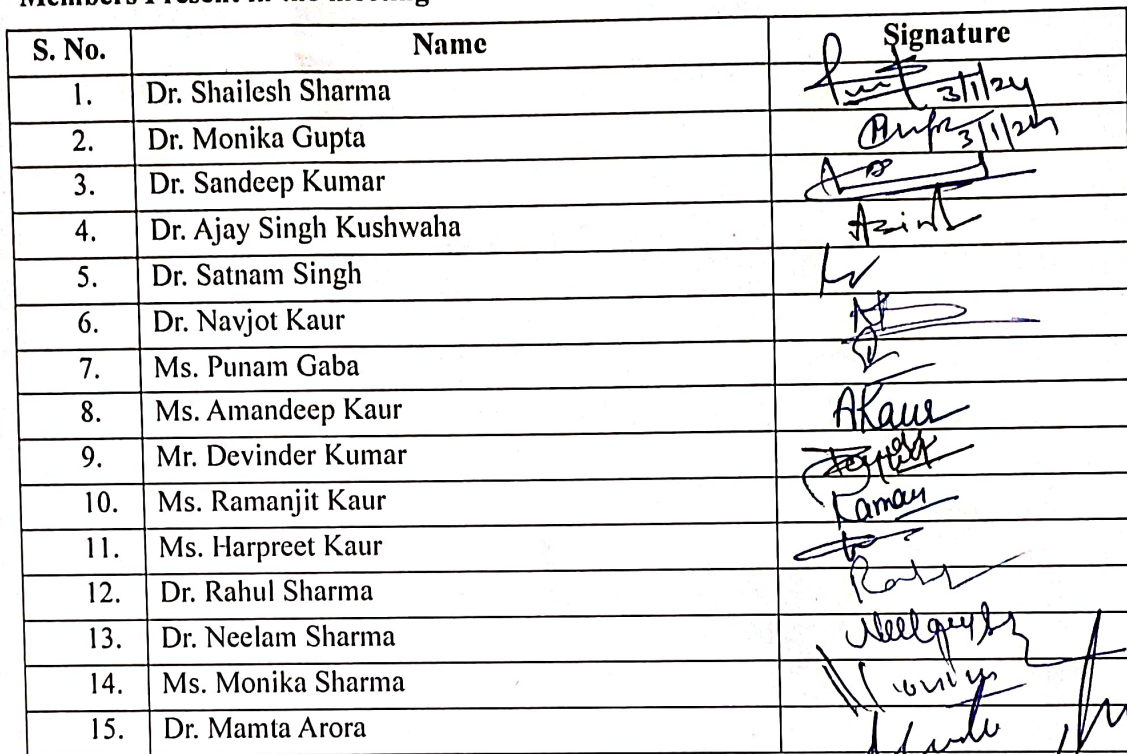 Members Present in the meeting
S. No. Name Signature
1. Dr. Shailesh Sharma 3/1/24
2. Dr. Monika Gupta 3/1/24
3. Dr. Sandeep Kumar
4. Dr. Ajay Singh Kushwaha
5. Dr. Satnam Singh
6. Dr. Navjot Kaur
7. Ms. Punam Gaba
8. Ms. Amandeep Kaur AKaur
9. Mr. Devinder Kumar
10. Ms. Ramanjit Kaur Raman
11. Ms. Harpreet Kaur
12. Dr. Rahul Sharma
13. Dr. Neelam Sharma
14. Ms. Monika Sharma
15. Dr. Mamta Arora